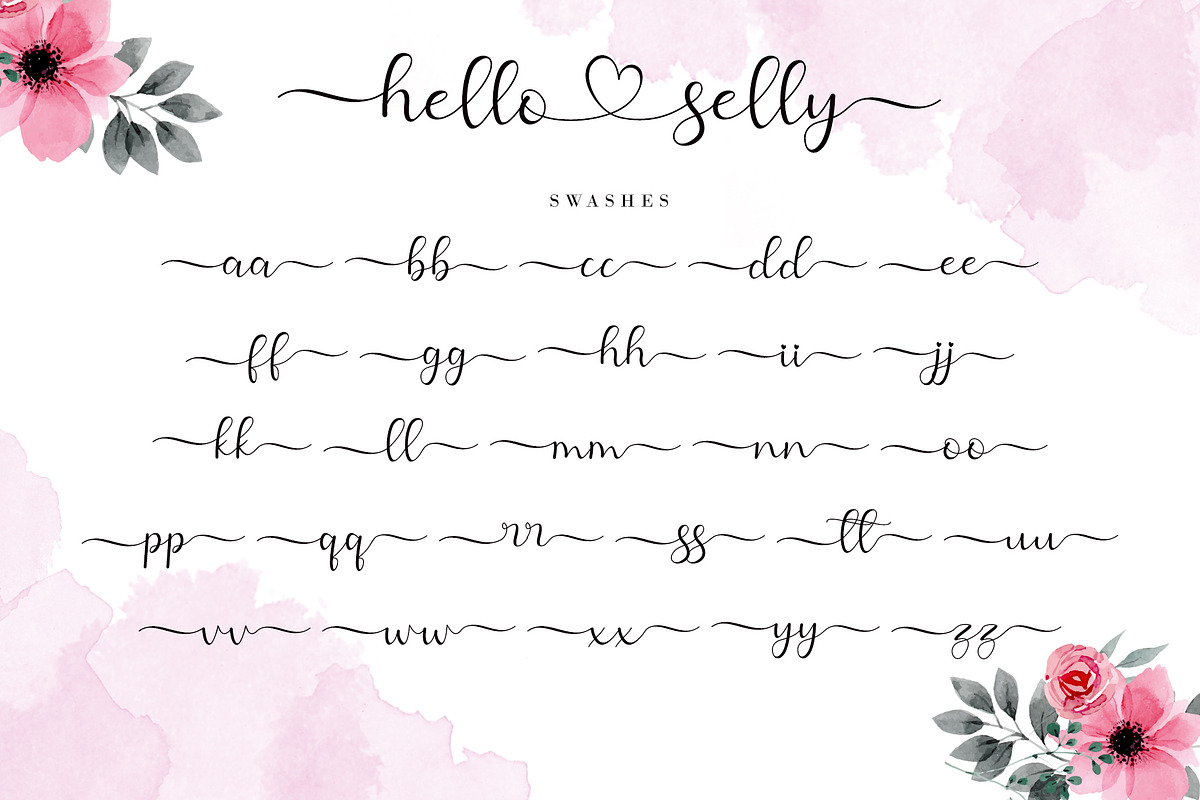 hello selly
SWASHES
aa bb cc dd ee
ff gg hh ii jj
kk ll mm nn oo
pp qq rr ss tt uu
vv ww xx yy zz